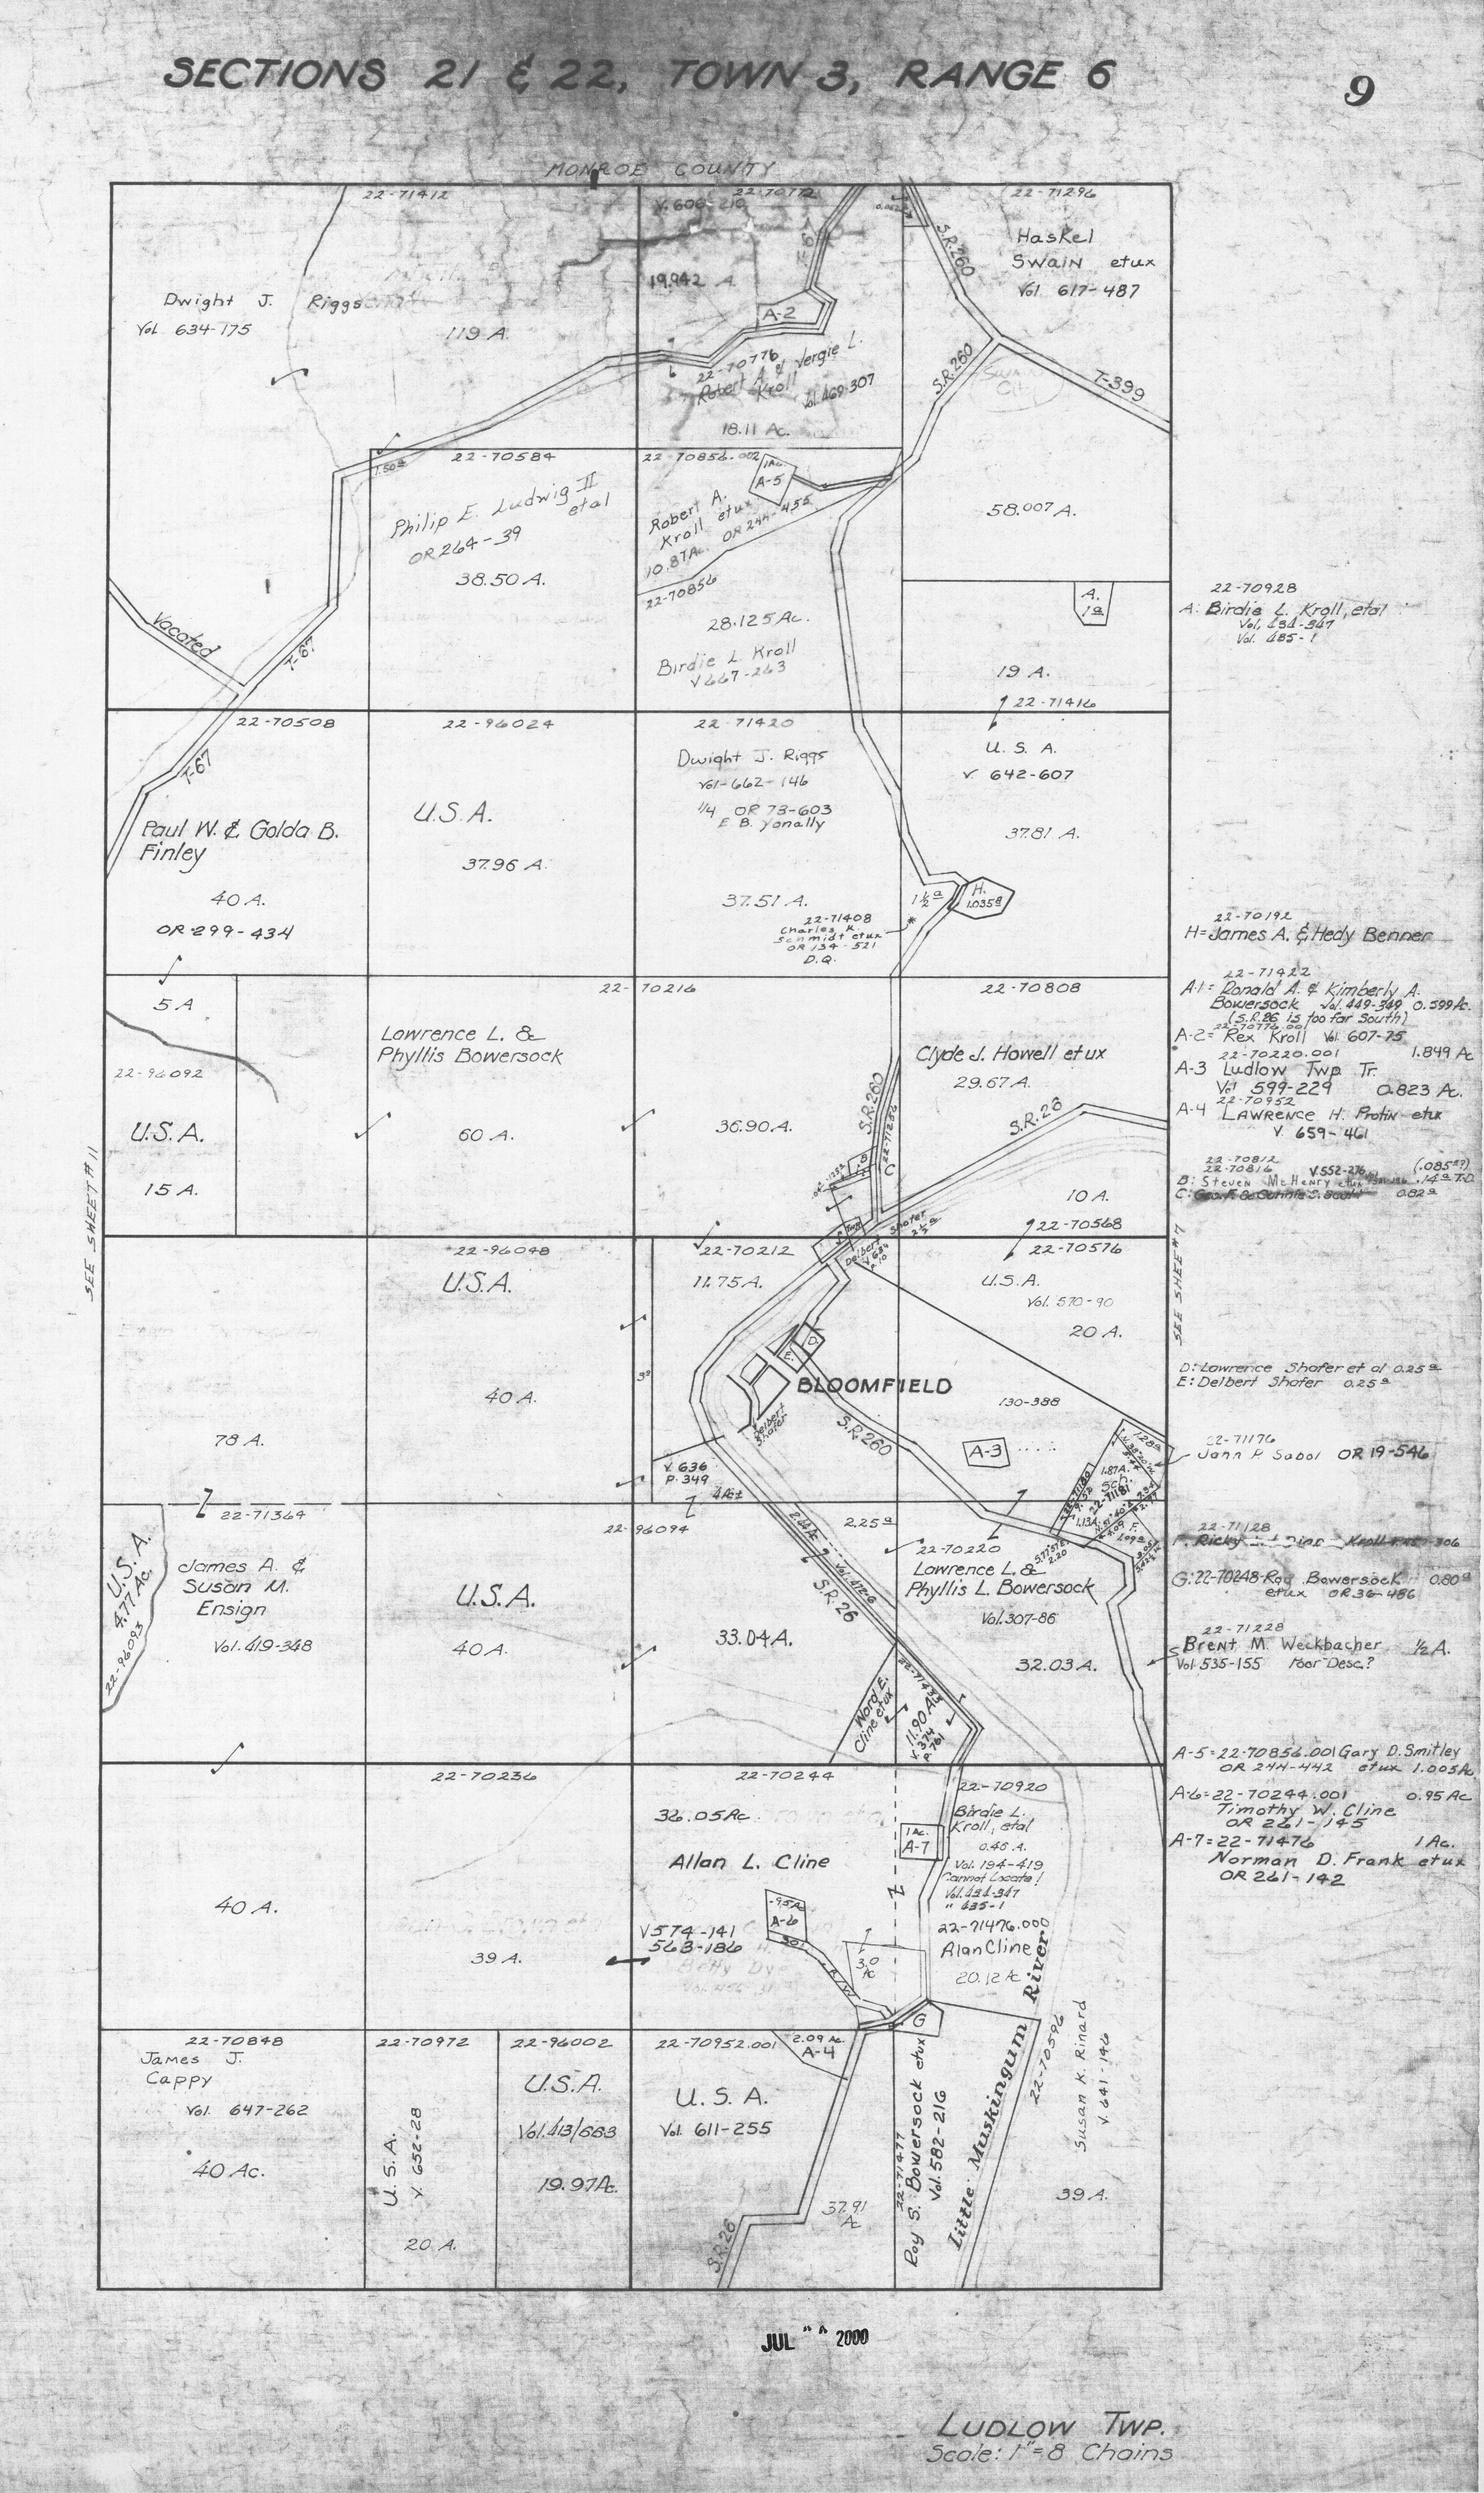 SECTIONS 21 & 22, TOWN 3, RANGE 6
9
MONROE COUNTY
22-71412
Dwight J. Riggs
Vol. 634-175
119 A.
22-70772
V. 606-210
19.942 A.
A-2
22-70776
Robert A. & Vergie L.
Kroll
Vol. 469-307
18.11 Ac.
22-71296
Haskel
SWAIN etux
Vol. 617-487
S.R.260
S.R.260
T-399
58.007 A.
A.
1a
19 A.
22-71416
1.50a
22-70584
Philip E. Ludwig II
etal
OR 264-39
38.50 A.
22-70856.002
1Ac.
A-5
Robert A.
Kroll etux
10.87Ac. OR 244-455
22-70856
28.125 Ac.
Birdie L. Kroll
V 667-263
Vacated
T-67
22-70928
A: Birdie L. Kroll, etal
Vol. 434-347
Vol. 485-1
22-70508
T-67
Paul W. & Golda B.
Finley
40 A.
OR 299-434
22-96024
U.S.A.
37.96 A.
22-71420
Dwight J. Riggs
Vol-662-146
1/4 OR 73-603
E. B. Yonally
37.51 A.
22-71408
Charles K.
Schmidt etux
OR 134-521
D.Q.
U. S. A.
V. 642-607
37.81 A.
1½a
H.
1.035a
22-70192
H=James A. & Hedy Benner
22-71422
A-1= Ronald A. & Kimberly A.
Bowersock Vol. 449-349 0.599 Ac.
(S.R.26 is too far South)
22-70776.001
A-2= Rex Kroll Vol. 607-75
1.849 Ac
22-70220.001
A-3 Ludlow Twp. Tr.
Vol 599-229 0.823 Ac.
22-70952
A-4 LAWRENCE H. Protin etux
V. 659-461
22-70812
22-70816 V.552-276 (.085a?)
B: Steven McHenry etux .14a T.D.
C: 0.82a
5 A
22-96092
U.S.A.
15 A.
22-70216
Lawrence L. &
Phyllis Bowersock
60 A.
36.90 A.
22-70808
Clyde J. Howell et ux
29.67 A.
S.R.260
S.R.26
B
C
10 A.
22-70568
Delbert Shafer
2½a
V. 634
SEE SHEET #11
SEE SHEET #7
78 A.
22-96048
U.S.A.
40 A.
22-70212
11.75 A.
D.
E.
BLOOMFIELD
Delbert
Shafer
S.R.260
V. 636
P. 349
4 Ac±
22-70576
U.S.A.
Vol. 570-90
20 A.
130-388
A-3
1.28a
1.87A.
Sch.
22-71181
D: Lawrence Shafer et al 0.25a
E: Delbert Shafer 0.25a
22-71176
John P. Sabol OR 19-546
22-71128
F. Ricky
G: 22-70248-Roy Bowersock 0.80a
etux OR 36-486
22-71228
Brent M. Weckbacher ½ A.
Vol. 535-155 Poor Desc.?
U.S.A.
4.77 Ac.
22-96093
22-71364
James A. &
Susan M.
Ensign
Vol. 419-348
22-96094
U.S.A.
40 A.
33.04 A.
S.R.26
Ward E.
Cline etux
22-71433
11.90 A.
V. 374
P. 761
2.25a
22-70220
Lawrence L. &
Phyllis L. Bowersock
Vol. 307-86
32.03 A.
F.
1.09a
40 A.
22-70236
39 A.
22-70244
36.05 Ac
Allan L. Cline
V574-141
563-186
.95Ac
A-6
30' R/W
3.0
Ac
1 Ac.
A-7
22-70920
Birdie L.
Kroll, etal
0.46 A.
Vol. 194-419
Cannot Locate!
Vol. 434-347
" 435-1
22-71476.000
Alan Cline
20.12 Ac
G
A-5=22-70856.001 Gary D. Smitley
OR 244-442 etux 1.005Ac
A-6=22-70244.001 0.95 Ac
Timothy W. Cline
OR 261-145
A-7=22-71476 1 Ac.
Norman D. Frank etux
OR 261-142
22-70848
James J.
Cappy
Vol. 647-262
40 Ac.
22-70972
U.S.A.
V. 652-28
20 A.
22-96002
U.S.A.
Vol.413/683
19.97Ac.
22-70952.001
U. S. A.
Vol. 611-255
2.09 Ac.
A-4
37.91
Ac
S.R.26
22-71477
Roy S. Bowersock etux
Vol. 582-216
Little Muskingum River
22-70596
Susan K. Rinard
V. 641-146
39 A.
JUL 2000
LUDLOW TWP.
Scale: 1"=8 Chains